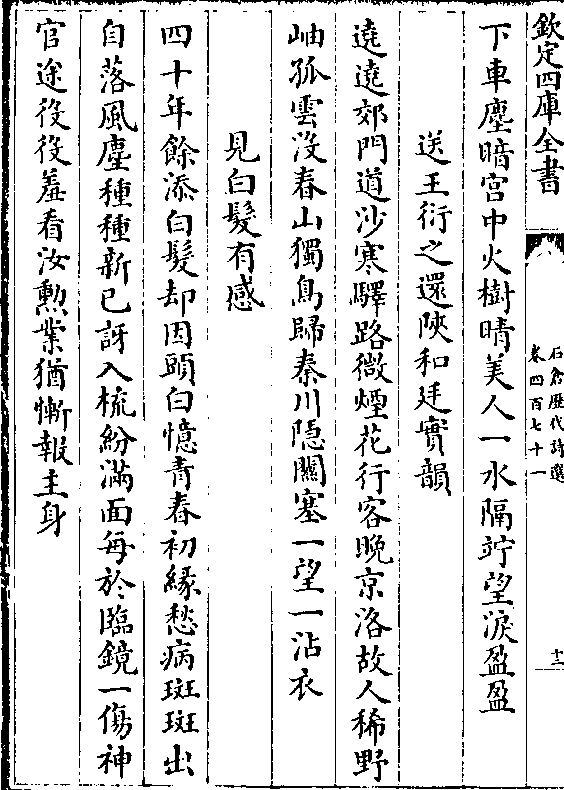 欽定四庫全書
石倉歷代詩選
卷四百七十一
十二
下車塵暗宫中火樹晴美人一水隔竚望淚盈盈
送王衍之還陝和廷實韻
遠遠郊門道沙寒驛路微煙花行客晚京洛故人稀野
岫孤雲沒春山獨鳥歸秦川隱關塞一望一沾衣
見白髮有感
四十年餘添白髮却因頭白憶青春初緣愁病斑斑出
自落風塵種種新已訝入梳紛滿面每於臨鏡一傷神
官途役役羞看汝勲業猶慚報主身